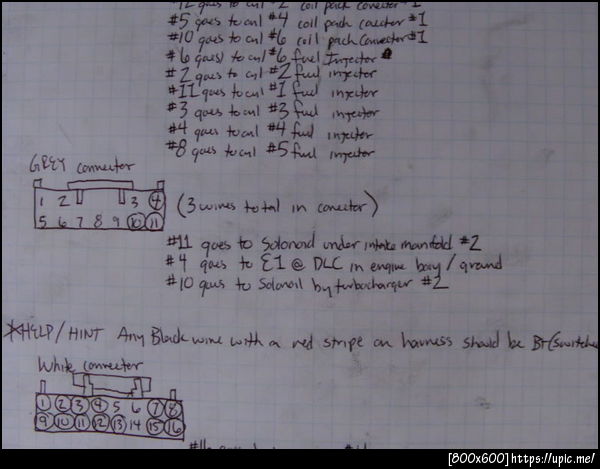 #12 goes to cyl #2 coil pack conector #1
#5 goes to cyl #4 coil pack conector #1
#10 goes to cyl #6 coil pack Connector #1
#6 goes to cyl #6 fuel Injector
#2 goes to cyl #2 fuel injector
#11 goes to cyl #1 fuel injector
#3 goes to cyl #3 fuel injector
#4 goes to cyl #4 fuel injector
#8 goes to cyl #5 fuel injector
GREY connector
1 2 3 4
5 6 7 8 9 10 11
(3 wires total in conector)
#11 goes to Solonoid under intake manifold #2
#4 goes to E1 @ DLC in engine bay / ground
#10 goes to Solonoid by turbocharger #2
*HELP/HINT Any Black wire with a red stripe on harness should be B+ (switche
White connector
1 2 3 4 5 6 7 8
9 10 11 12 13 14 15 16
[800x600]https://upic.me/